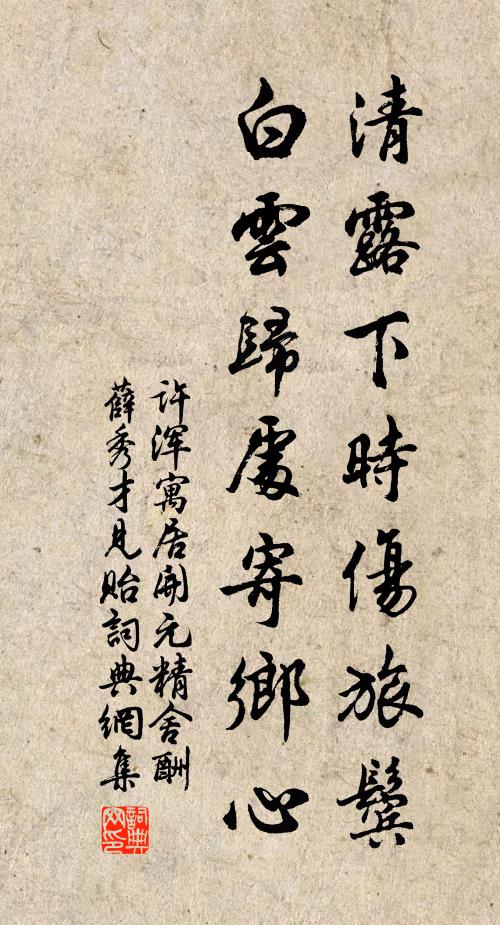 清露下時傷旅鬓
白雲歸處寄鄉心
许浑寓居開元精舍酬
薛秀才見貽詞典網集
詞典
网印